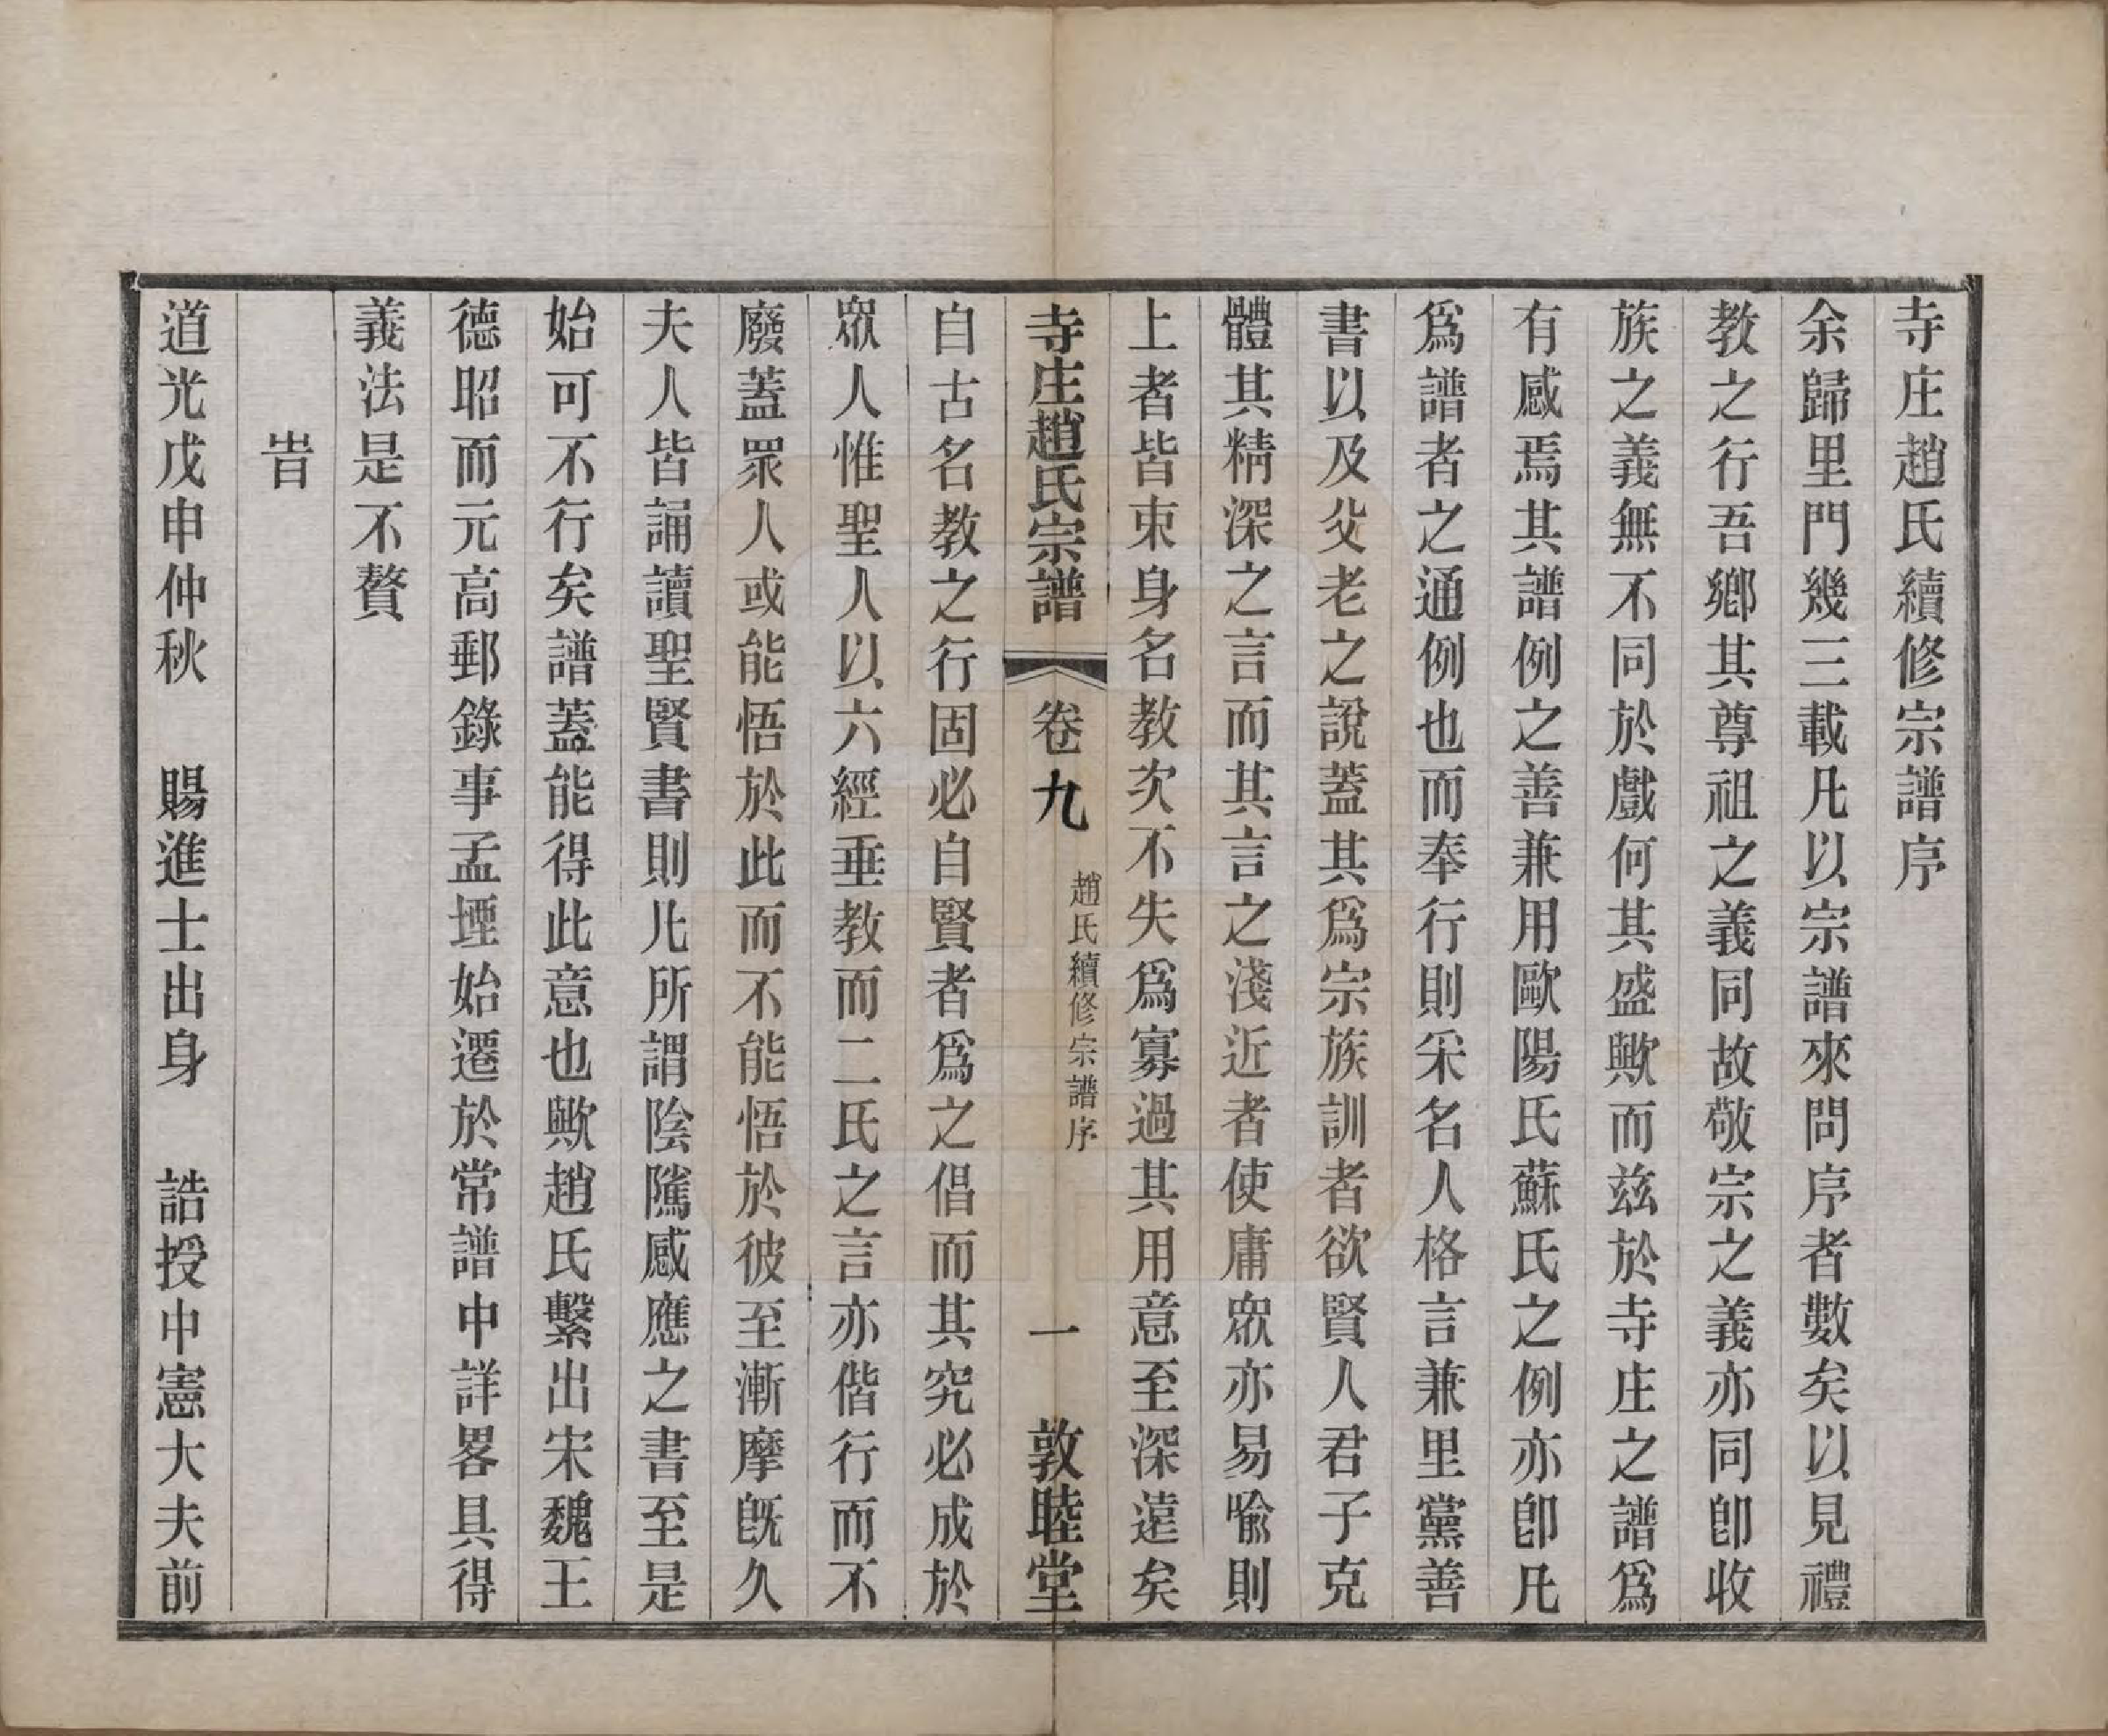 寺庄趙氏續修宗譜序
余歸里門幾三載凡以宗譜來問序者數矣以見禮
教之行吾鄉其尊祖之義同故敬宗之義亦同卽收
族之義無不同於戲何其盛歟而兹於寺庄之譜爲
有感焉其譜例之善兼用歐陽氏蘇氏之例亦卽凡
爲譜者之通例也而奉行則采名人格言兼里黨善
書以及父老之說蓋其爲宗族訓者欲賢人君子克
體其精深之言而其言之淺近者使庸眾亦易喻則
上者皆束身名教次不失爲寡過其用意至深遠矣
寺庄趙氏宗譜 卷九 趙氏續修宗譜序 一 敦睦堂
自古名教之行固必自賢者爲之倡而其究必成於
眾人惟聖人以六經垂教而二氏之言亦偕行而不
廢蓋眾人或能悟於此而不能悟於彼至漸摩旣久
夫人皆誦讀聖賢書則凡所謂陰隲感應之書至是
始可不行矣譜蓋能得此意也歟趙氏繫出宋魏王
德昭而元高郵錄事孟堙始遷於常譜中詳畧具得
義法是不贅
旹
道光戊申仲秋 賜進士出身 誥授中憲大夫前